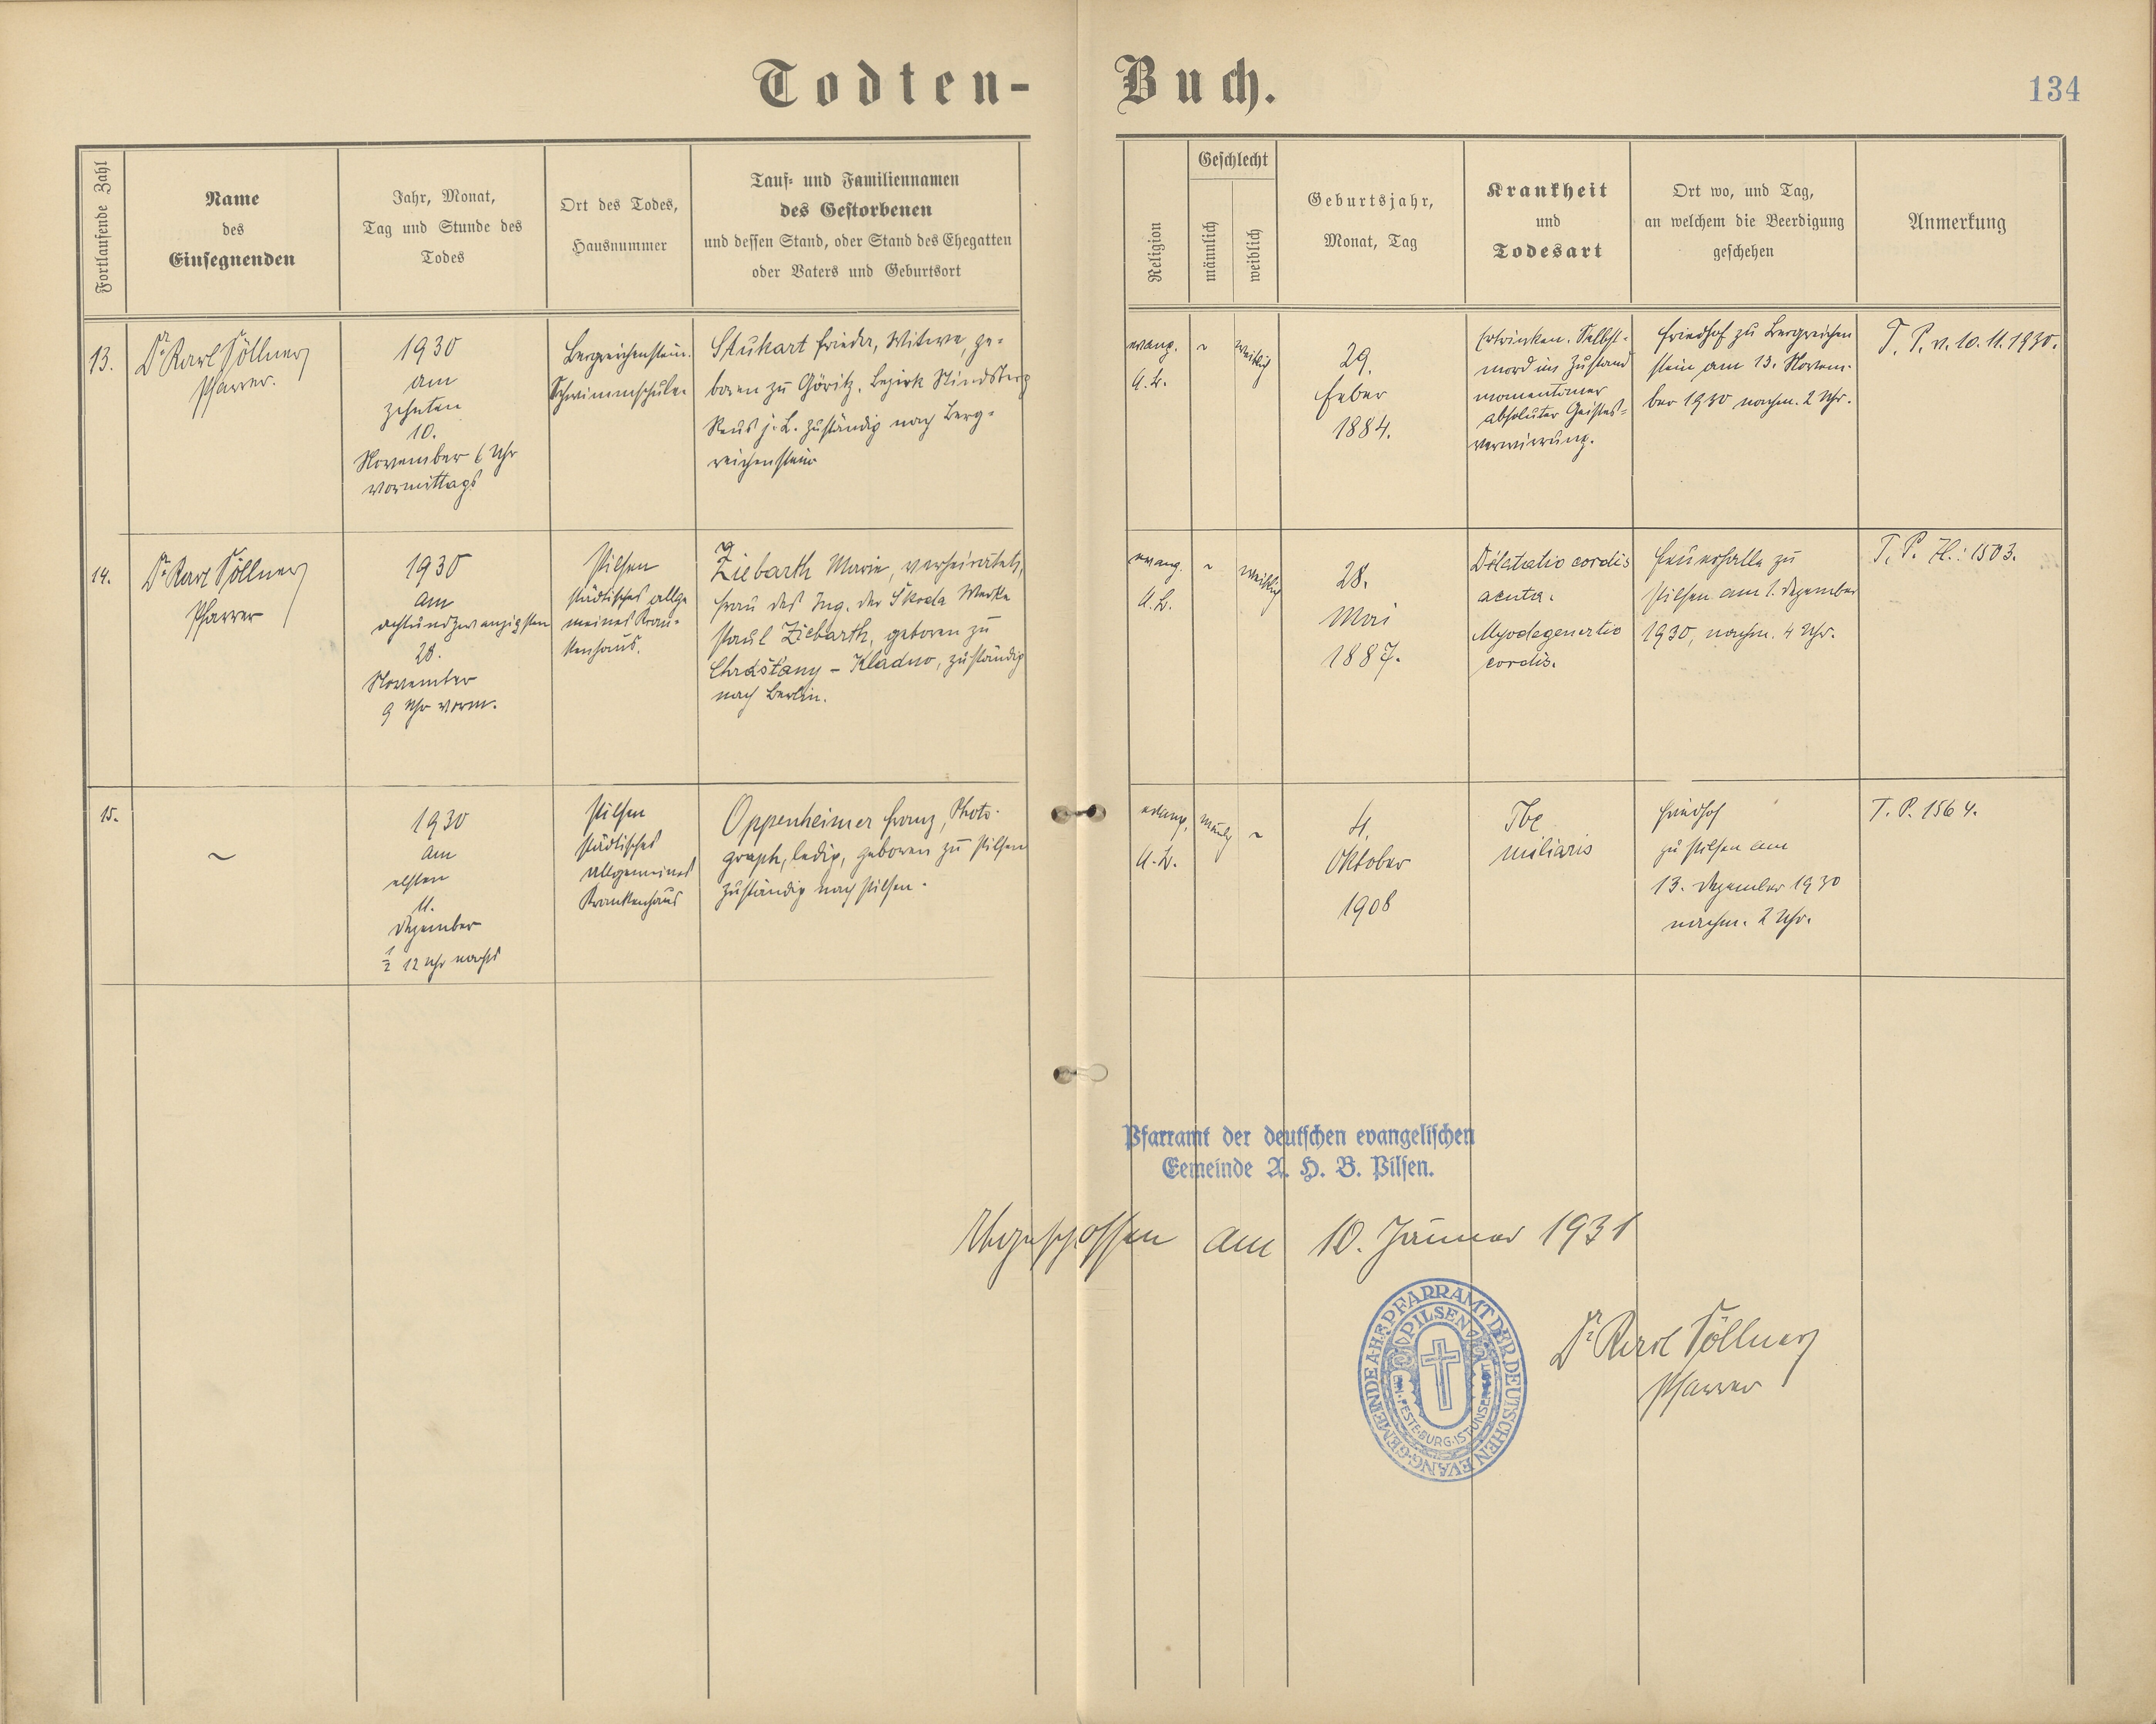 Todten-Buch.
134
Fortlaufende Zahl
Name
des
Einsegnenden
Jahr, Monat,
Tag und Stunde des
Todes
Ort des Todes,
Hausnummer
Tauf- und Familiennamen
des Gestorbenen
und dessen Stand, oder Stand des Ehegatten
oder Vaters und Geburtsort
Religion
Geschlecht
männlich
weiblich
Geburtsjahr,
Monat, Tag
Krankheit
und
Todesart
Ort wo, und Tag,
an welchem die Beerdigung
geschehen
Anmerkung
13.
Dr Karl Töllner
Pfarrer.
1930
am
zehnten
10.
November 6 Uhr
vormittags
Bergreichenstein.
Schwimmschule.
Stukart Frieda, Witwe, ge-
boren zu Göritz. Bezirk
Reus j. L. zuständig nach Berg-
reichenstein
evang.
A.B.
~
weiblich
29.
Feber
1884.
Ertrinken. Selbst-
mord im Zustand
momentaner
absoluter Geistes-
verwirrung.
Friedhof zu Bergreichen
stein am 13. Novem-
ber 1930 nachm. 2 Uhr.
T. P. v. 10. 11. 1930.
14.
Dr Karl Töllner
Pfarrer
1930
am
achtundzwanzigsten
28.
November
9 Uhr vorm.
Pilsen
städtisches allge
meines Kran-
kenhaus.
Ziebarth Marie, verheiratet,
Frau des Ing. der Škoda Werke
Paul Ziebarth, geboren zu
Chrášťany - Kladno, zuständig
nach Berlin.
evang.
A.B.
~
weiblich
28.
Mai
1887.
Dilatatio cordis
acuta.
Myodegenertio
cordis.
Feuerhalle zu
Pilsen am 1. Dezember
1930, nachm. 4 Uhr.
T. P. Zl.: 1503.
15.
~
1930
am
elften
11.
Dezember
½ 12 Uhr nachts
Pilsen
städtisches
allgemeines
Krankenhaus
Oppenheimer Franz, Photo-
graph, ledig, geboren zu Pilsen
zuständig nach Pilsen.
evang.
A.B.
männlich
~
4.
Oktober
1908
Tbc
miliaris
Friedhof
zu Pilsen am
13. Dezember 1930
nachm. 2 Uhr.
T. P. 1564.
Pfarramt der deutschen evangelischen
Gemeinde A. H. B. Pilsen.
Abgeschlossen am 10. Jänner 1931
PFARRAMT DER DEUTSCHEN EVANG. GEMEINDE A.H.B.
PILSEN
EIN FESTE BURG IST UNSER GOTT
Dr Karl Töllner
Pfarrer